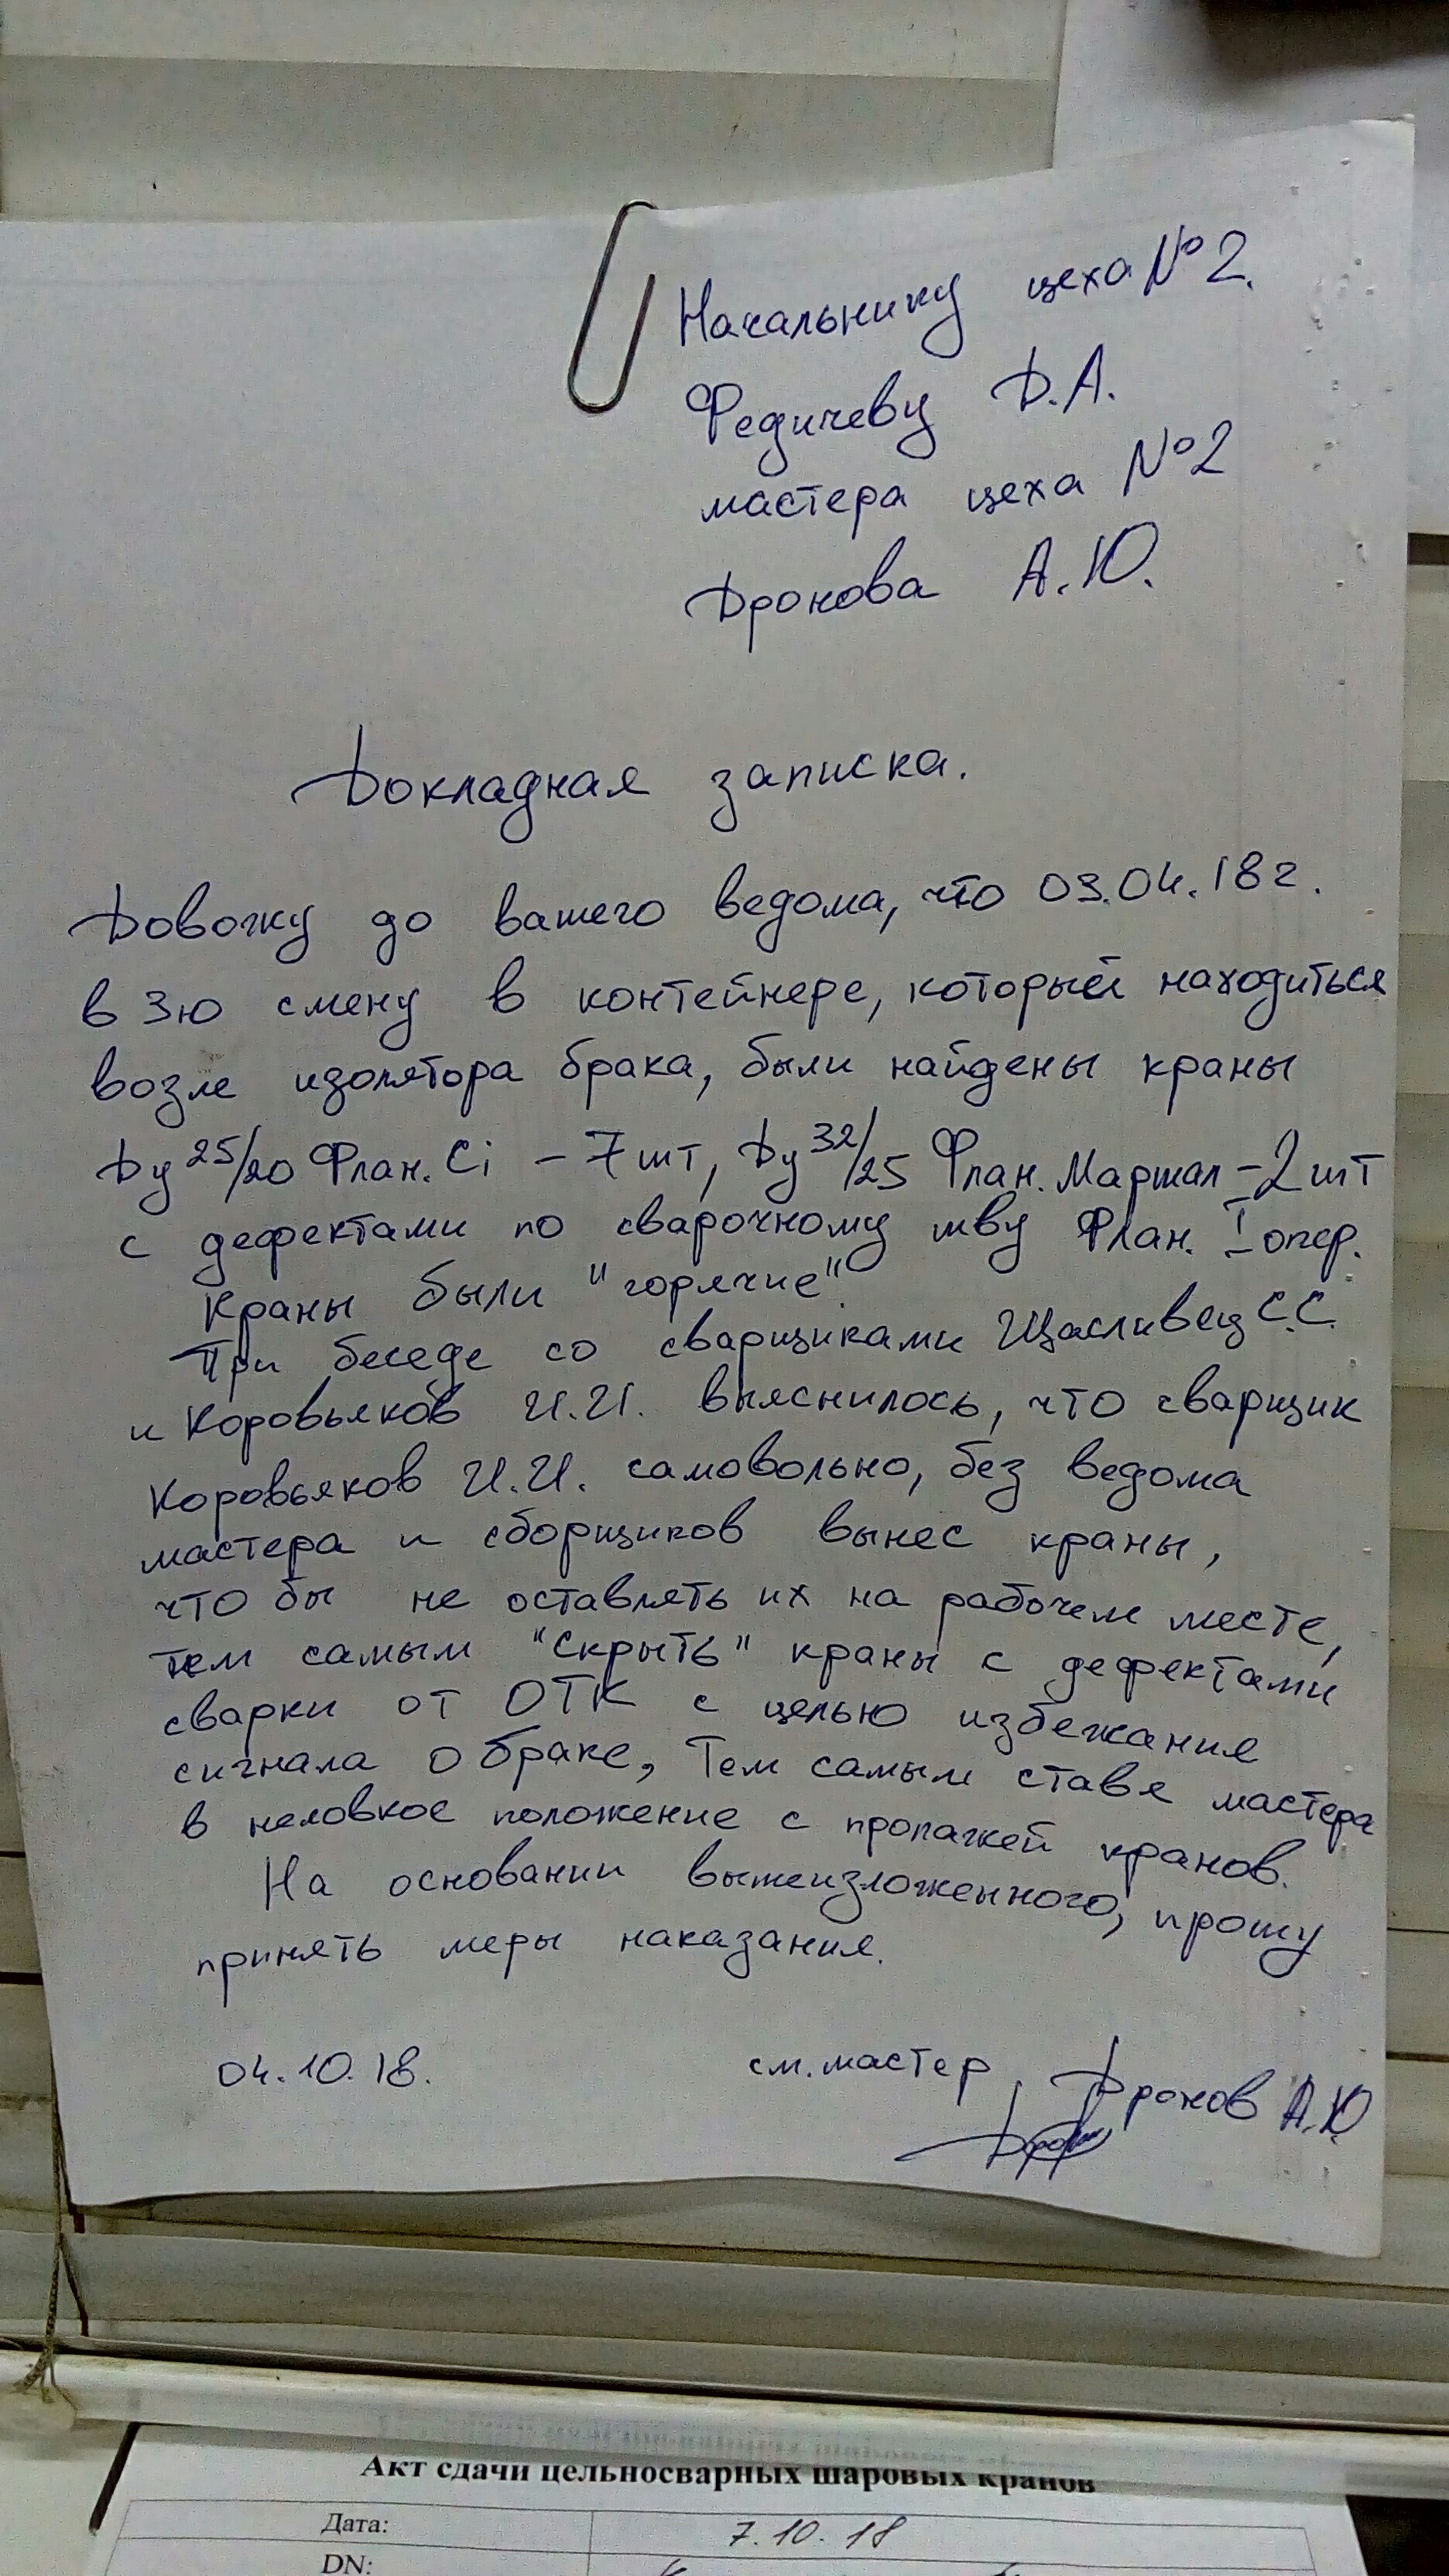 Начальнику цеха №2.
Федичеву Д.А.
мастера цеха №2
Дронова А.Ю.
Докладная записка.
Довожу до вашего ведома, что 03.04.18г.
в 3ю смену в контейнере, который находиться
возле изолятора брака, были найдены краны
Ду 25/20 Флан. Ci - 7шт, Ду 32/25 Флан. Маршал - 2шт
с дефектами по сварочному шву Флан. I опер.
Краны были "горячие".
При беседе со сварщиками Щасливец С.С.
и Коровьяков И.И. выяснилось, что сварщик
Коровьяков И.И. самовольно, без ведома
мастера и сборщиков вынес краны,
что бы не оставлять их на рабочем месте,
тем самым "скрыть" краны с дефектами
сварки от ОТК с целью избежания
сигнала о браке, Тем самым ставя мастера
в неловкое положение с пропажей кранов.
На основании вышеизложенного, прошу
принять меры наказания.
04.10.18. см. мастер Дронов А.Ю
Акт сдачи цельносварных шаровых кранов
Дата: 7.10.18
DN: